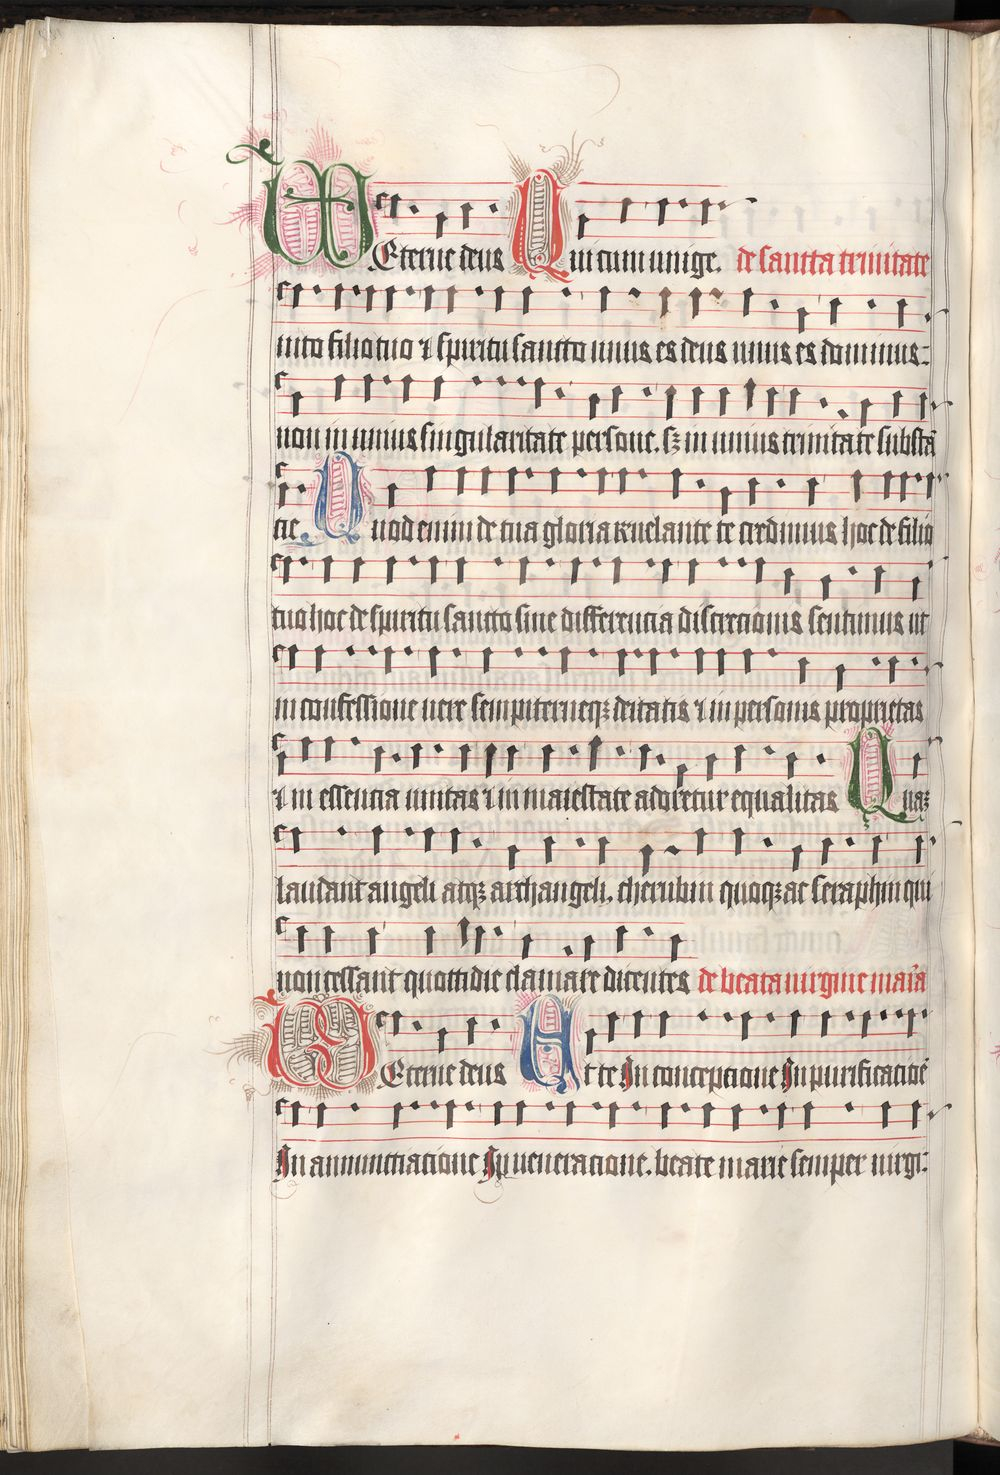 VD Eterne deus Qui cum unige. de sancta trinitate
nito filio tuo ⁊ spiritu sancto unus es deus unus es dominus:
non in unius singularitate persone. sꝫ in unius trinitate substā
cie. Quod enim de tua gloria reuelante te credimus hoc de filio
tuo hoc de spiritu sancto sine differencia discrecionis sentimus ut
in confessione uere sempiterneqꝫ deitatis ⁊ in personis proprietas
⁊ in essencia unitas ⁊ in maiestate adoretur equalitas Quaꝫ
laudant angeli atqꝫ archangeli. cherubin quoqꝫ ac seraphin qui
non cessant quottidie clamare dicentes de beata uirgine maria
VD Eterne deus Et te In concepcione In purificacioē
In annunctiacione In ueneracione. beate marie semper uirgi: